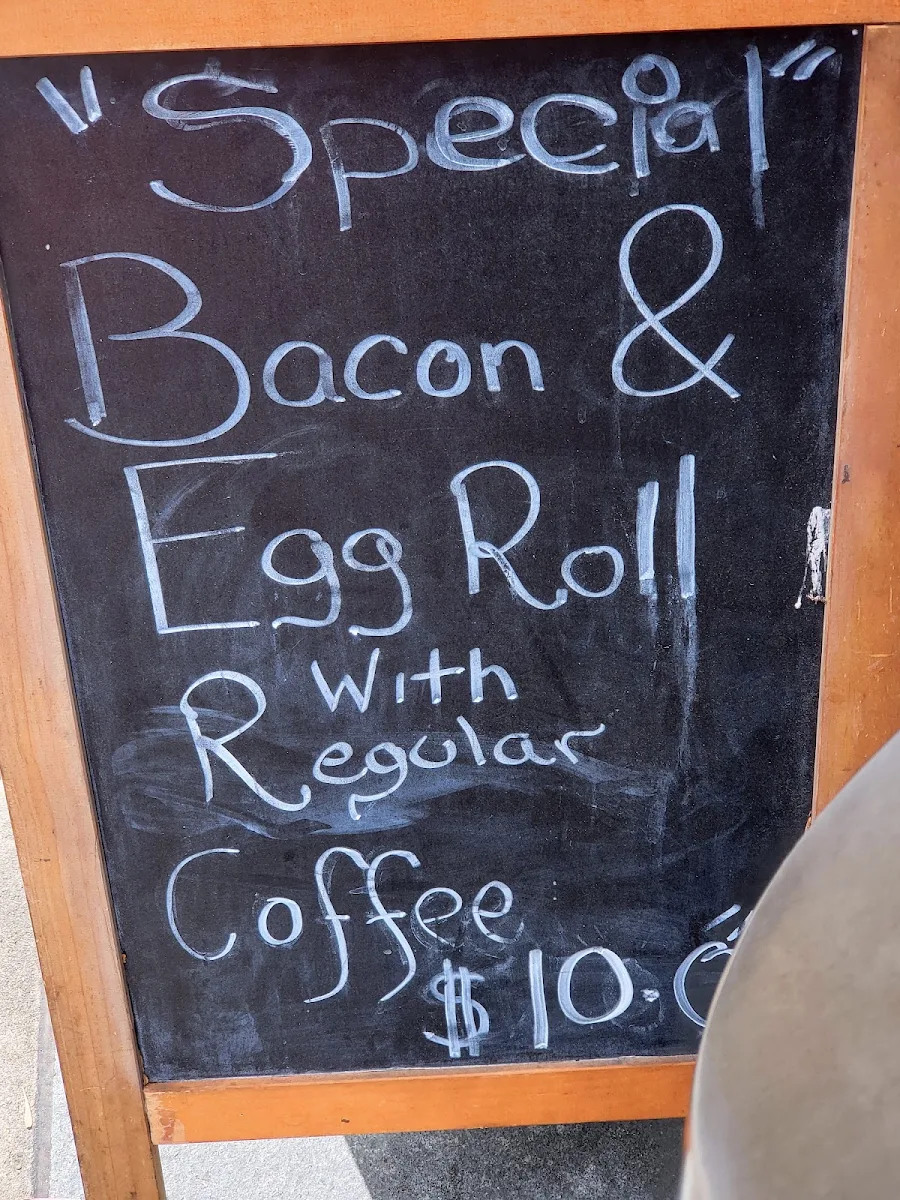 "Special"
Bacon &
Egg Roll
With
Regular
Coffee
$10.